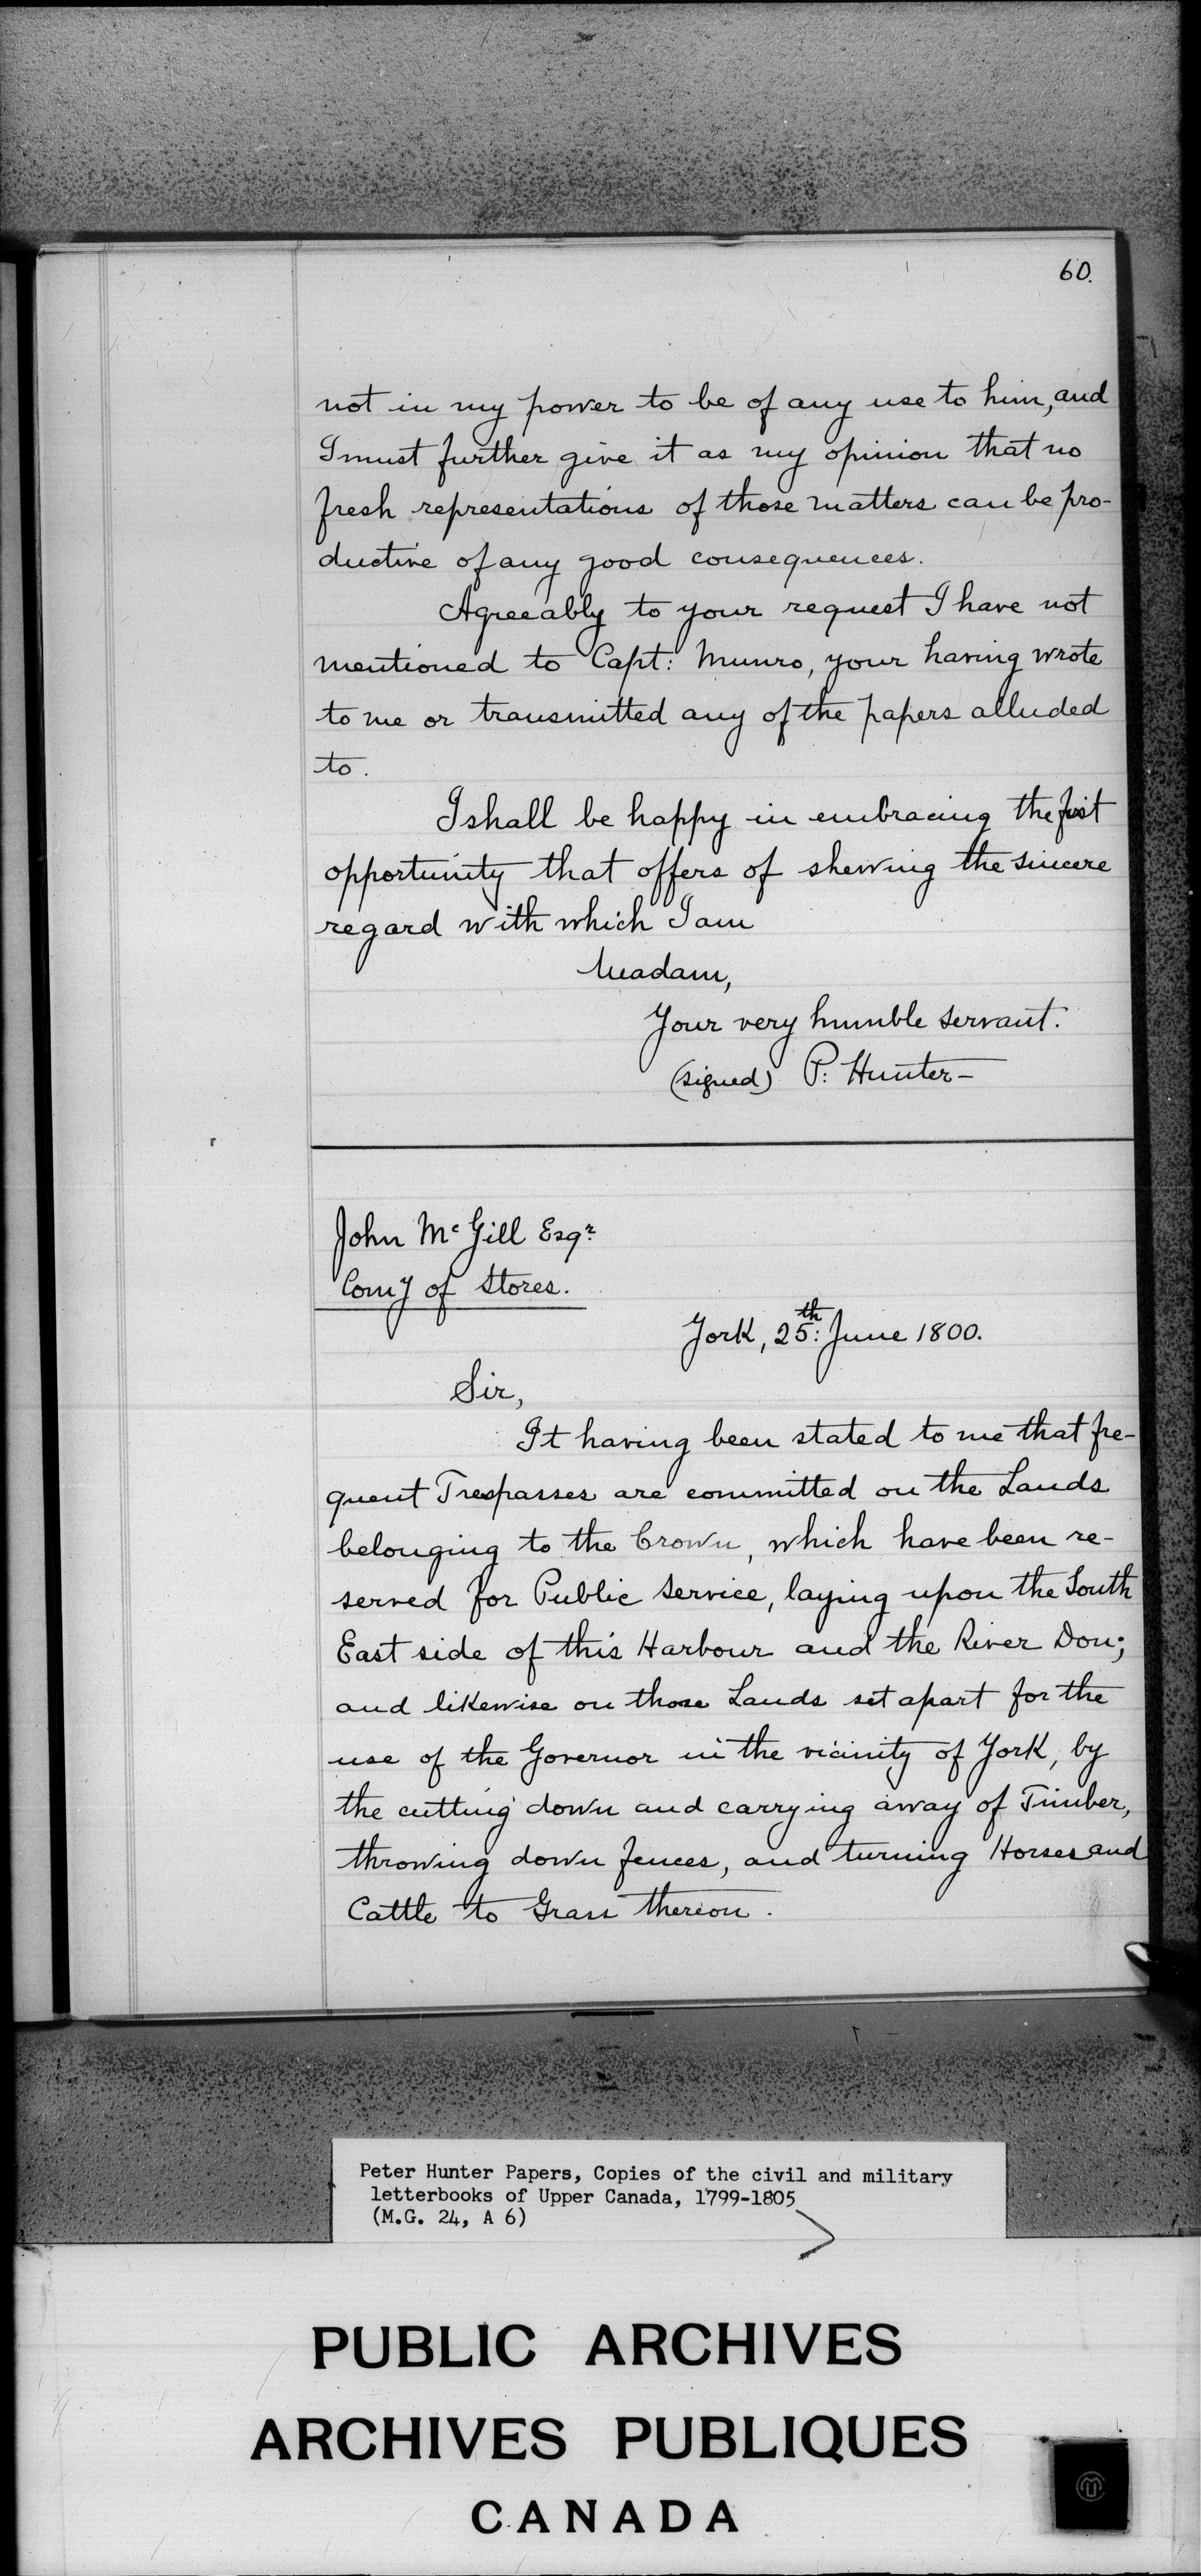 60.
not in my power to be of any use to him, and
I must further give it as my opinion that no
fresh representations of those matters can be pro-
ductive of any good consequences.
Agreeably to your request I have not
mentioned to Capt: Munro, your having wrote
to me or transmitted any of the papers alluded
to.
I shall be happy in embracing the first
opportunity that offers of shewing the sincere
regard with which I am
Madam,
Your very humble servant.
(signed) P: Hunter–
John McGill Esqr.
Comy of Stores.
York, 25th: June 1800.
Sir,
It having been stated to me that fre-
quent Trespasses are committed on the Lands
belonging to the Crown, which have been re-
served for Public Service, laying upon the South
East side of this Harbour and the River Don;
and likewise on those Lands set apart for the
use of the Governor in the vicinity of York, by
the cutting down and carrying away of Timber,
throwing down fences, and turning Horses and
Cattle to Grass thereon.
Peter Hunter Papers, Copies of the civil and military
letterbooks of Upper Canada, 1799-1805
(M.G. 24, A 6)
PUBLIC ARCHIVES
ARCHIVES PUBLIQUES
CANADA